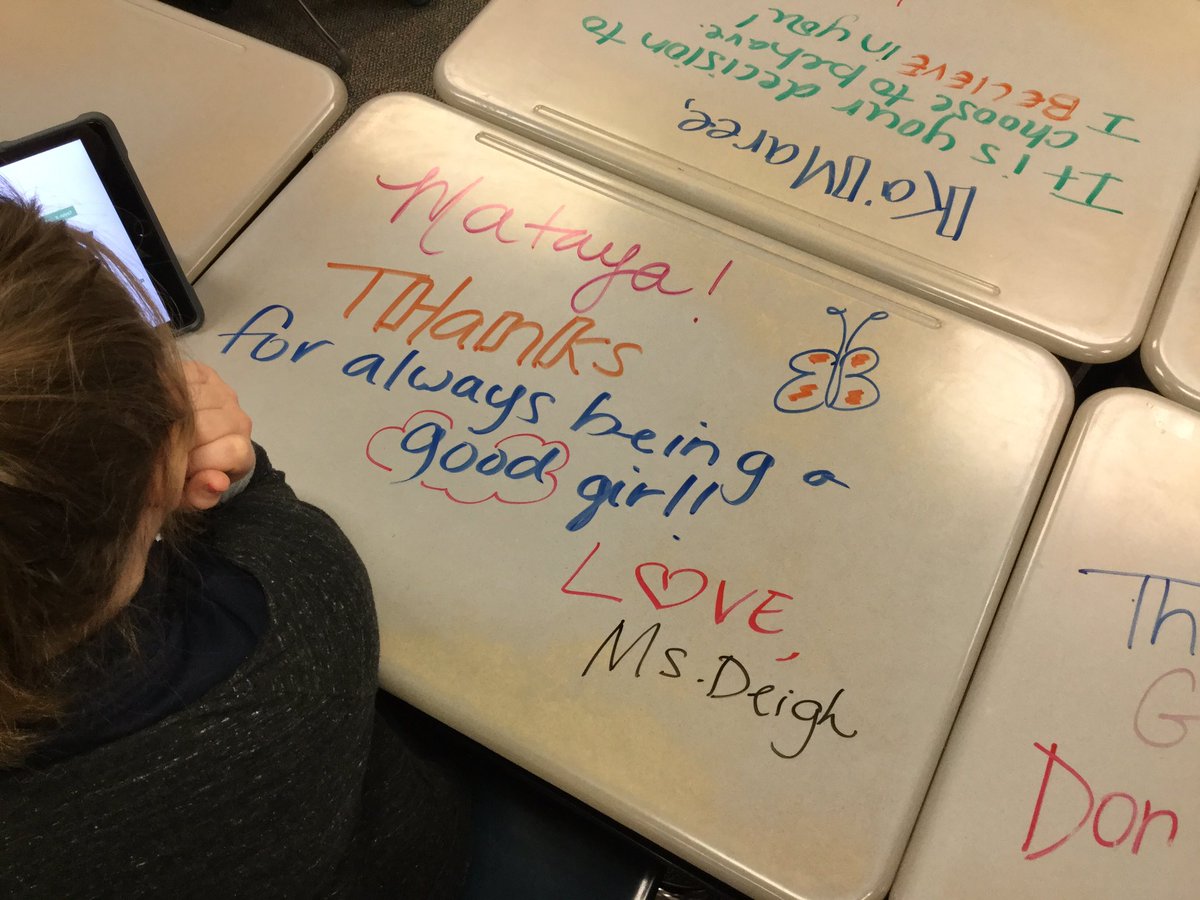 Mataya!
THanks
for always being a
good girl!!
LOVE,
Ms. Deigh
Ka'Maree,
It is your decision to
choose to behave.
I BELIEVE in you!
Th
G
Don